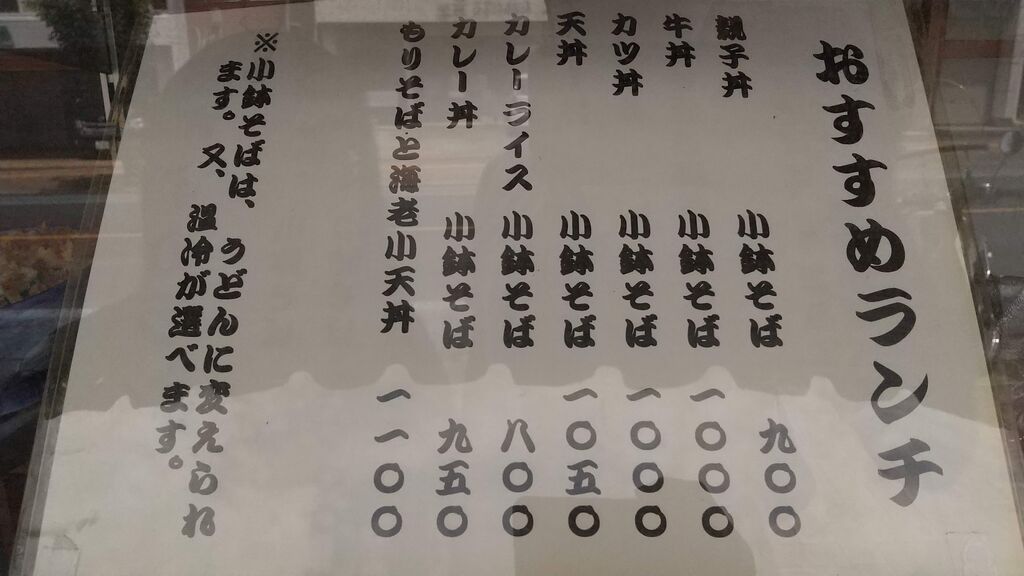 おすすめランチ
親子丼 小鉢そば 九〇〇
牛丼 小鉢そば 一〇〇〇
カツ丼 小鉢そば 一〇〇〇
天丼 小鉢そば 一〇五〇
カレーライス 小鉢そば 八〇〇
カレー丼 小鉢そば 九五〇
もりそばと海老小天丼 一一〇〇
※小鉢そばは、うどんに変えられ
ます。又、温冷が選べます。